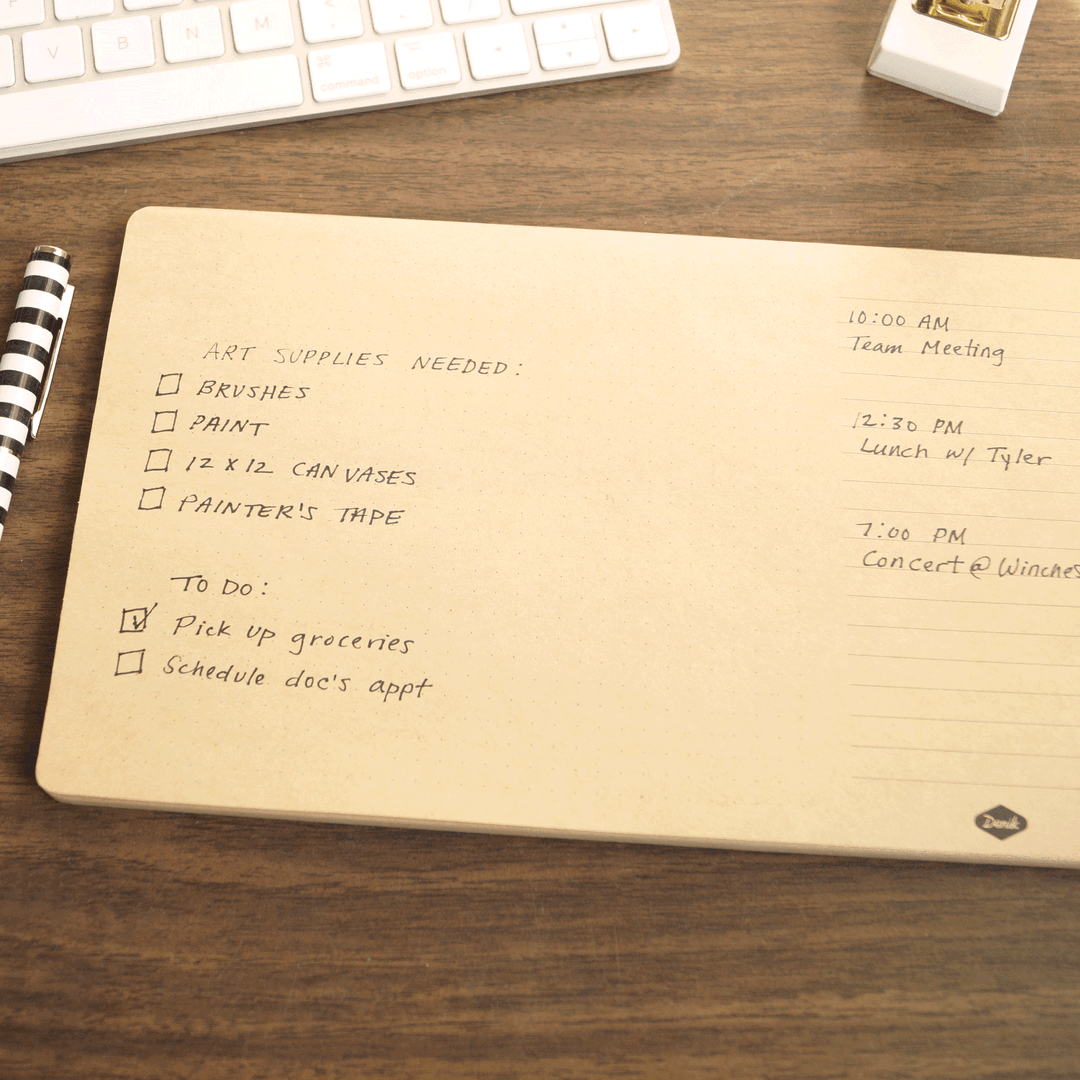 V
B
N
M
<
command
option
ART SUPPLIES NEEDED:
BRUSHES
PAINT
12 x 12 CANVASES
PAINTER'S TAPE
TO DO:
Pick up groceries
Schedule doc's appt
10:00 AM
Team Meeting
12:30 PM
Lunch w/ Tyler
7:00 PM
Concert @ Winches
Denik